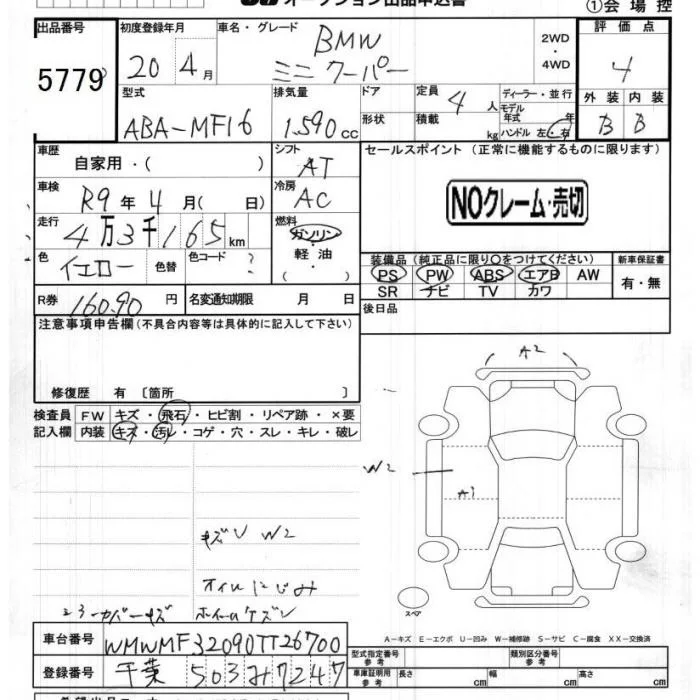 オークション出品申込書 ①会場控
出品番号 5779
初度登録年月 20年 4月
車名・グレード BMW ミニクーパー
2WD・4WD
評価点 4
外装 B 内装 B
型式 ABA-MF16
排気量 1.590cc
ドア 形状
定員 4人
積載 kg
ディーラー・並行
モデル年式 年
ハンドル 左・右
車歴 自家用・( )
シフト AT
セールスポイント (正常に機能するものに限ります)
NOクレーム・売切
車検 R9年 4月( 日)
冷房 AC
走行 4万3千165km
燃料 ガソリン・軽油・( )
色 イエロー 色替 色コード ?
装備品(純正品に限り○をつけてください) 新車保証書
PS PW ABS エアB AW 有・無
SR ナビ TV カワ
R券 16090円 名変通知期限 月 日
後日品
注意事項申告欄(不具合内容等は具体的に記入して下さい)
修復歴 有〔箇所 〕
検査員 FW キズ・飛石・ヒビ割・リペア跡・×要
記入欄 内装 キズ・汚レ・コゲ・穴・スレ・キレ・破レ
A2
W2
A1
キズU W2
オイルにじみ
ミラーカバーキズ ホイールキズU
スペア
A-キズ E-エクボ U-凹み W-補修跡 S-サビ C-腐食 XX-交換済
車台番号 WMWMF32090TT26700
登録番号 千葉 503 み 7247
型式指定番号 参考 類別区分番号 参考
車庫証明用 参考 長さ cm 幅 cm 高さ cm